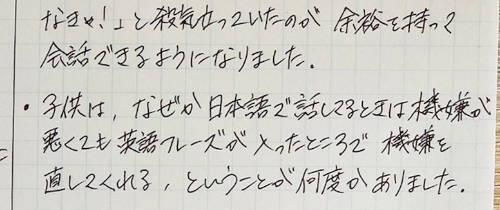 なきゃ!」と殺気立っていたのが 余裕を持って
会話できるようになりました.
・子供は, なぜか日本語で話してるときは機嫌が
悪くても英語フレーズが入ったところで 機嫌を
直してくれる, ということが何度かありました.